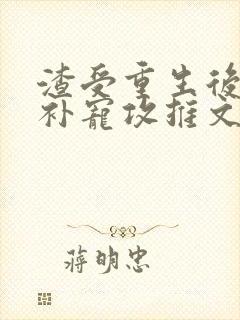 渣受重生後
补寵攻推文
蒋明忠